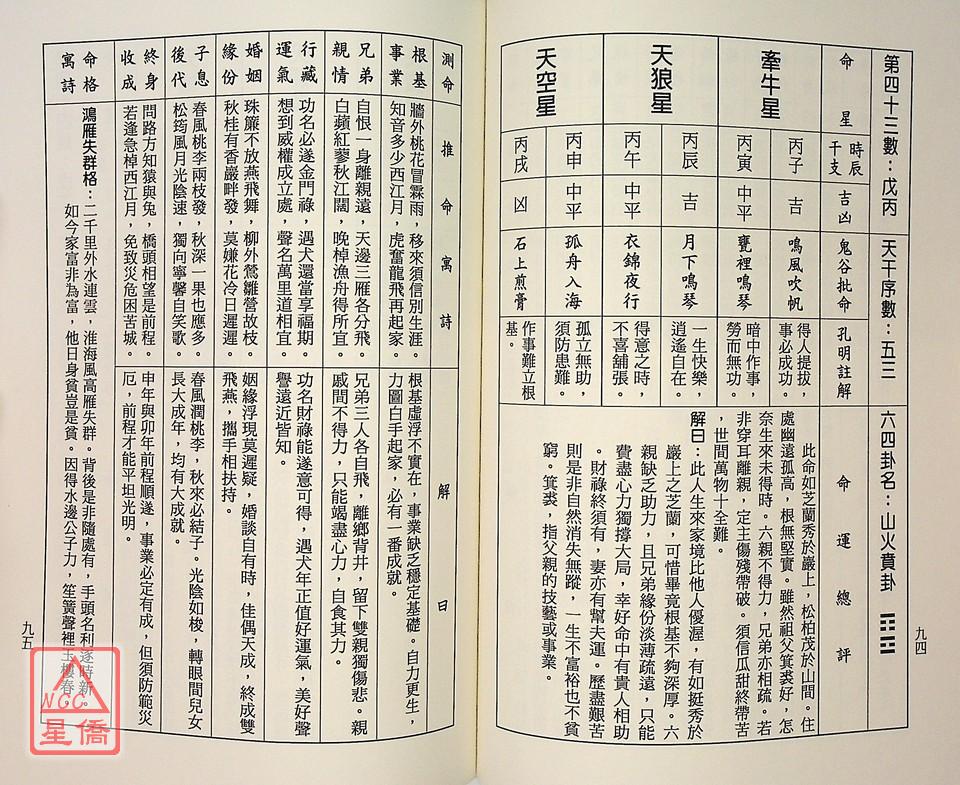 第四十三數：戊丙
天干序數：五三
六四卦名：山火賁卦
命星
時辰干支
吉凶
鬼谷批命
孔明註解
命運總評
牽牛星
丙子
吉
鳴風吹帆
得人提拔，
事必成功。
丙寅
中平
甕裡鳴琴
暗中作事，
勞而無功。
天狼星
丙辰
吉
月下鳴琴
一生快樂，
逍遙自在。
丙午
中平
衣錦夜行
得意之時，
不喜舖張。
天空星
丙申
中平
孤舟入海
孤立無助，
須防患難。
丙戌
凶
石上煎膏
作事難立根
基。
此命如芝蘭秀於巖上，松柏茂於山間。住
處幽遠孤高，根無堅實。雖然祖父箕裘好，怎
奈生來未得時。六親不得力，兄弟亦相疏。若
非穿耳離親，定主傷殘帶破。須信瓜甜終帶苦
，世間萬物十全難。
解曰：此人生來家境比他人優渥，有如挺秀於
巖上之芝蘭，可惜畢竟根基不夠深厚。六
親缺乏助力，且兄弟緣份淡薄疏遠，只能
費盡心力獨撐大局，幸好命中有貴人相助
。財祿終須有，妻亦有幫夫運。歷盡艱苦
則是非自然消失無蹤，一生不富裕也不貧
窮。箕裘，指父親的技藝或事業。
九四
測命
推命寓詩
解曰
根基事業
牆外桃花冒霖雨，移來須信別生涯。
知音多少西江月，虎奮龍飛再起家。
根基虛浮不實在，事業缺乏穩定基礎。自力更生，
力圖白手起家，必有一番成就。
兄弟親情
自恨一身離親遠，天邊三雁各分飛。
白蘋紅蓼秋江闊，晚棹漁舟得所宜。
兄弟三人各自飛，離鄉背井，留下雙親獨傷悲。親
戚間不得力，只能竭盡心力，自食其力。
行藏運氣
功名必遂金門祿，遇犬還當享福期。
想到威權成立處，聲名萬里道相宜。
功名財祿能遂意可得，遇犬年正值好運氣，美好聲
譽遠近皆知。
婚姻緣份
珠簾不放燕飛舞，柳外鶯雛營故枝。
秋桂有香巖畔發，莫嫌花冷日遲遲。
姻緣浮現莫遲疑，婚談自有時，佳偶天成，終成雙
飛燕，攜手相扶持。
子息後代
春風桃李兩枝發，秋深一果也應多。
松筠風月光陰速，獨向寧馨自笑歌。
春風潤桃李，秋來必結子。光陰如梭，轉眼間兒女
長大成年，均有大成就。
終身收成
問路方知猿與兔，橋頭相望是前程。
若逢急棹西江月，免致災危困苦城。
申年與卯年前程順遂，事業必定有成，但須防範災
厄，前程才能平坦光明。
命格寓詩
鴻雁失群格：二千里外水連雲，淮海風高雁失群。背後是非隨處有，手頭名利逐時新。
如今家富非為富，他日身貧豈是貧。因得水邊公子力，笙簧聲裡玉樓春。
九五
NCC
星僑